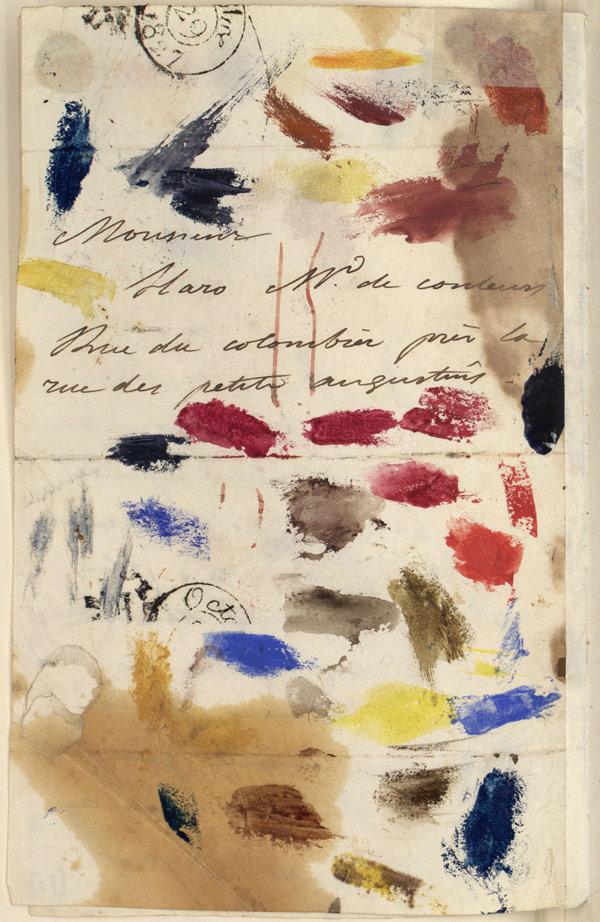 1827
Monsieur
Haro Md. de couleurs
Rue du colombier près la
rue des petits augustins
Octo